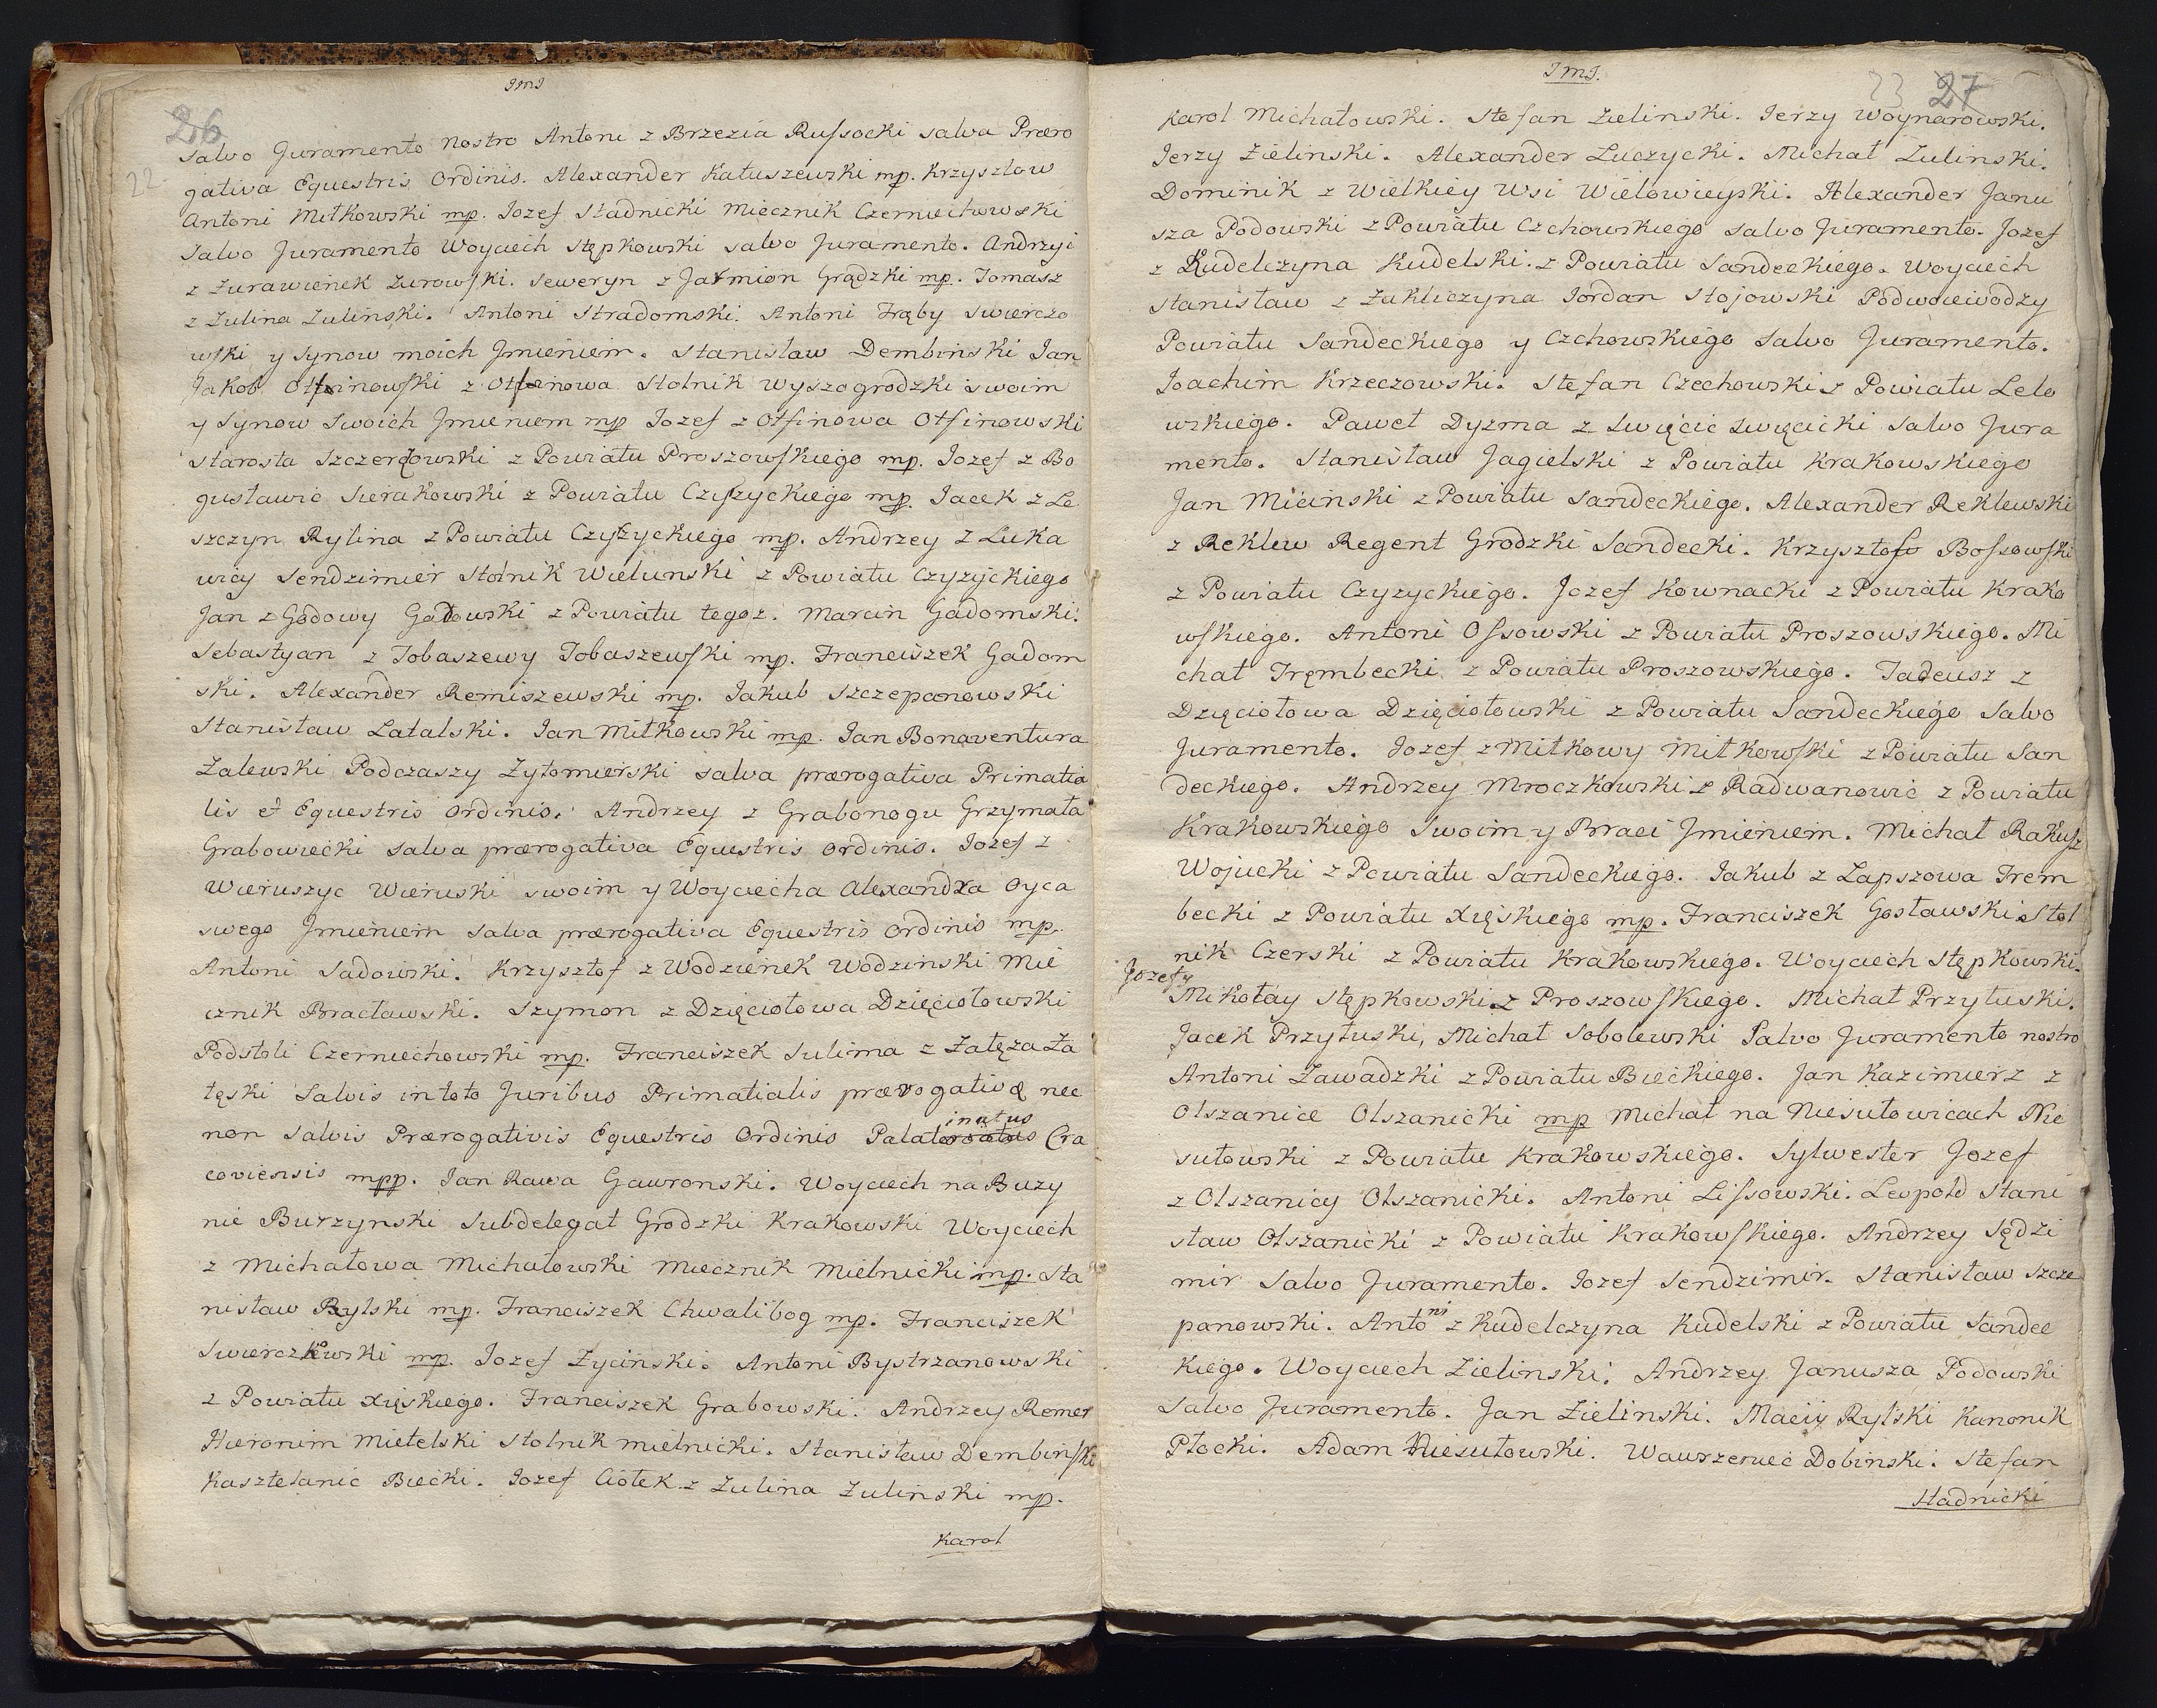 JMJ
26
22
salvo Juramento nostro Antoni z Brzezia Russocki salva Præro
gativa Equestris Ordinis. Alexander Katuszewski mp. Krzysztow
Antoni Miłkowski mp. Jozef Stadnicki Miecznik Czerniechowski
Salvo Juramento Woyciech Stępkowski salvo Juramento. Andrzyi
z Zurawienek Zurowski. Seweryn z Jaxmion Grądzki mp. Tomasz
z Zulina Zulinski. Antoni Stradomski. Antoni Trąby Swierczo
wski y Synow moich Jmieniem. Stanislaw Dembinski Jan
Jakob Otfinowski z Otfinowa Stolnik Wyszogrodzki swoim
y Synow Swoich Jmieniem mp Jozef z Otfinowa Otfinowski
Starosta Szczercowski z Powiatu Proszowskiego mp. Jozef z Bo
gusławic Sierakowski z Powiatu Czyzyckiego mp. Jacek z Le
szczyn Rylina z Powiatu Czyzyckiego mp. Andrzey z Luka
wicy Sendzimir Stolnik Wielunski z Powiatu Czyzyckiego
Jan z Godowy Godowski z Powiatu tegoz. Marcin Gadomski.
Sebastyan z Tobaszewy Tobaszewski mp. Franciszek Gadom
ski. Alexander Remiszewski mp. Jakub Szczepanowski
Stanisław Latalski. Jan Miłkowski mp. Jan Bonaventura
Zalewski Podczaszy Zytomierski salva prærogativa Primatia
lis et Equestris Ordinis. Andrzey z Grabonogu Grzymała
Grabowiecki salva prærogativa Equestris Ordinis. Jozef z
Wieruszyc Wieruski swoim y Woyciecha Alexandra Oyca
swego Jmieniem salva prærogativa Equestris Ordinis mp.
Antoni Sadowski. Krzysztof z Wodzienek Wodzinski Mie
cznik Bracławski. Szymon z Dzięciołowa Dzięciołowski
Podstoli Czerniechowski mp. Franciszek Sulima z Załęza Za
łęski Salvis in toto Juribus Primatialis prærogativæ nec
non salvis Prærogativis Equestris Ordinis Palatinatus Cra
coviensis mpp. Jan Rawa Gawronski. Woyciech na Buzy
nie Burzynski Subdelegat Grodzki Krakowski Woyciech
z Michałowa Michałowski Miecznik Mielnicki mp. Sta
nisław Rylski mp. Franciszek Chwalibog mp. Franciszek
Swierczkowski mp. Jozef Zycinski. Antoni Bystrzanowski
z Powiatu Xięskiego. Franciszek Grabowski. Andrzey Remer
Hieronim Mietelski Stolnik mielnicki. Stanisław Dembinski
Kasztelanic Biecki. Jozef Ciołek z Zulina Zulinski mp.
Karol
JMJ.
23 27
Karol Michałowski. Stefan Zielinski. Jerzy Woynarowski.
Jerzy Zielinski. Alexander Luczycki. Michał Zulinski.
Dominik z Wielkiey Wsi Wielowieyski. Alexander Janu
sza Podowski z Powiatu Czchowskiego salvo Juramento. Jozef
z Kudelczyna Kudelski. z Powiatu Sandeckiego. Woyciech
Stanisław z Zakliczyna Jordan Stojowski Podwoiewodzy
Powiatu Sandeckiego y Czchowskiego Salvo Juramento.
Joachim Krzeczowski. Stefan Czechowski z Powiatu Lelo
wskiego. Paweł Dyzma z Swięcic Swięcicki Salvo Jura
mento. Stanisław Jagielski z Powiatu Krakowskiego
Jan Micinski z Powiatu Sandeckiego. Alexander Reklewski
z Reklew Regent Grodzki Sandecki. Krzysztof Bossowski
z Powiatu Czyzyckiego. Jozef Kownacki z Powiatu Krako
wskiego. Antoni Ossowski z Powiatu Proszowskiego. Mi
chał Trębecki z Powiatu Proszowskiego. Tadeusz z
Dzięciołowa Dzięciołowski z Powiatu Sandeckiego Salvo
Juramento. Jozef z Miłkowy Miłkowski z Powiatu San
deckiego. Andrzey Mroczkowski z Radwanowic z Powiatu
Krakowskiego Swoim y Braci Jmieniem. Michał Rakusz
Wojucki z Powiatu Sandeckiego. Jakub z Lapszowa Trem
becki z Powiatu Xięskiego mp. Franciszek Gosławski Stol
nik Czerski z Powiatu Krakowskiego. Woyciech Stępkowski.
Jozef y
Mikołay Stępkowski z Proszowskiego. Michał Przyłuski.
Jacek Przyłuski, Michał Sobolewski Salvo Juramento nostro
Antoni Zawadzki z Powiatu Bieckiego. Jan Kazimierz z
Olszanice Olszanicki mp Michał na Niesułowicach Nie
sułowski z Powiatu Krakowskiego. Sylwester Jozef
z Olszanicy Olszanicki. Antoni Lissowski. Leopold Stani
sław Olszanicki z Powiatu Krakowskiego. Andrzey Sędzi
mir Salvo Juramento. Jozef Sendzimir. Stanisław Szcze
panowski. Antoni z Kudelczyna Kudelski z Powiatu Sandec
kiego. Woyciech Zielinski. Andrzey Janusza Podowski
Salvo Juramento. Jan Zielinski. Maciy Rylski Kanonik
Płocki. Adam Niesułowski. Wawrzeniec Dobinski. Stefan
Stadnicki